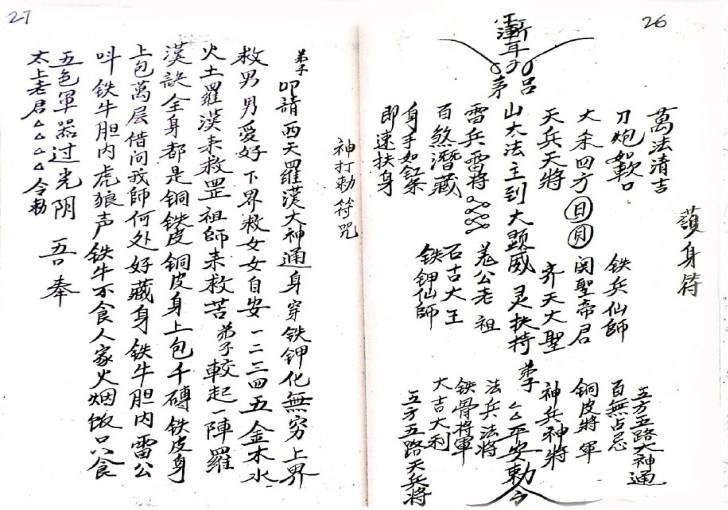 26
護身符
五方五路大神通
萬法清吉
百無占忌
刀炮如軟口
铁兵仙師
大采四方日月関聖帝君
銅皮將軍
天兵天將
齐天大聖
神兵神將
弟吕
山大法主到大顕威灵扶持弟子△△平安勅令
雪兵雷將
羗公老祖
法兵法將
百煞潛藏
石古大王
铁骨將軍
身手如缸柒
铁钾仙師
大吉大利
即速扶身
五方五路天兵將
27
神打勅符咒
弟子叩請西天羅漢大神通身穿铁钾化無穷上界
救男男愛好下界救女女自安一二三四五金木水
火土羅漢来救罡祖師来救苦弟子較起一陣羅
漢訣全身都是铜铁皮铜皮身上包千磚铁皮身
上包萬层借问我師何处好藏身铁牛胆内雷公
叫铁牛胆内虎狼声铁牛不食人家火烟饭只食
五色軍器过光阴吾奉
太上老君△△△△令勅